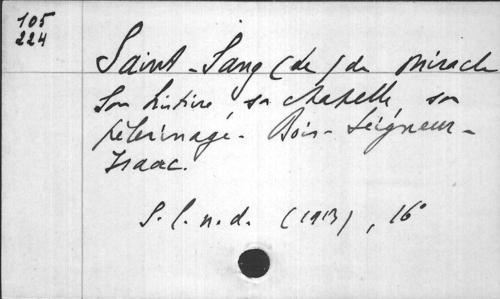 105
224
Saint-Sang (de) de Miracle
Son histoire sa chapelle son
pèlerinage. Bois-Seigneur-
Isaac.
S.l.n.d. (1913), 16°